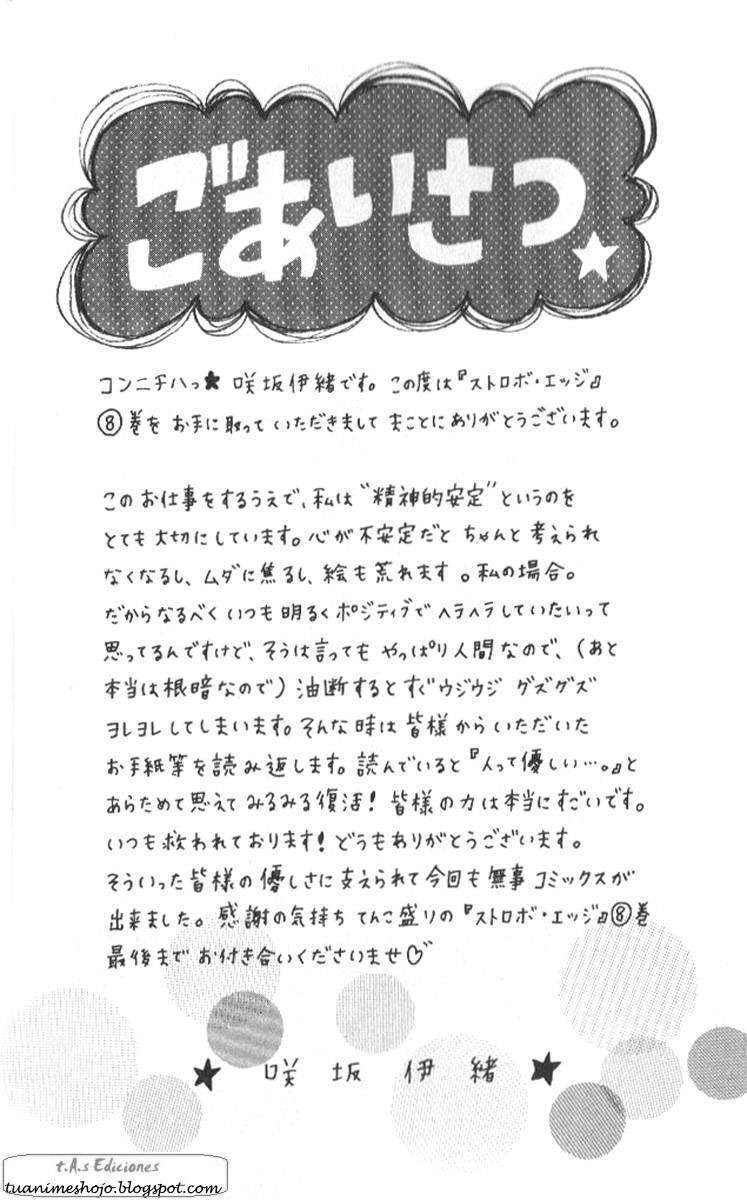 ごあいさつ★
コンニチハっ★ 咲坂伊緒です。この度は『ストロボ・エッジ』
⑧巻を お手に取って いただきまして まことにありがとうございます。
このお仕事をするうえで、私は“精神的安定”というのを
とても大切にしています。心が不安定だと ちゃんと考えられ
なくなるし、ムダに焦るし、絵も荒れます。私の場合。
だからなるべくいつも明るくポジティブでヘラヘラしていたいって
思ってるんですけど、そうは言ってもやっぱり人間なので、(あと
本当は根暗なので)油断するとすぐウジウジ グズグズ
ヨレヨレしてしまいます。そんな時は皆様からいただいた
お手紙等を読み返します。読んでいると『人って優しい…。』と
あらためて思えてみるみる復活!皆様の力は本当にすごいです。
いつも救われております!どうもありがとうございます。
そういった皆様の優しさに支えられて今回も無事コミックスが
出来ました。感謝の気持ちてんこ盛りの『ストロボ・エッジ』⑧巻
最後までお付き合いくださいませ♡
★ 咲坂伊緒 ★
t.A.s Ediciones
tuanimeshojo.blogspot.com